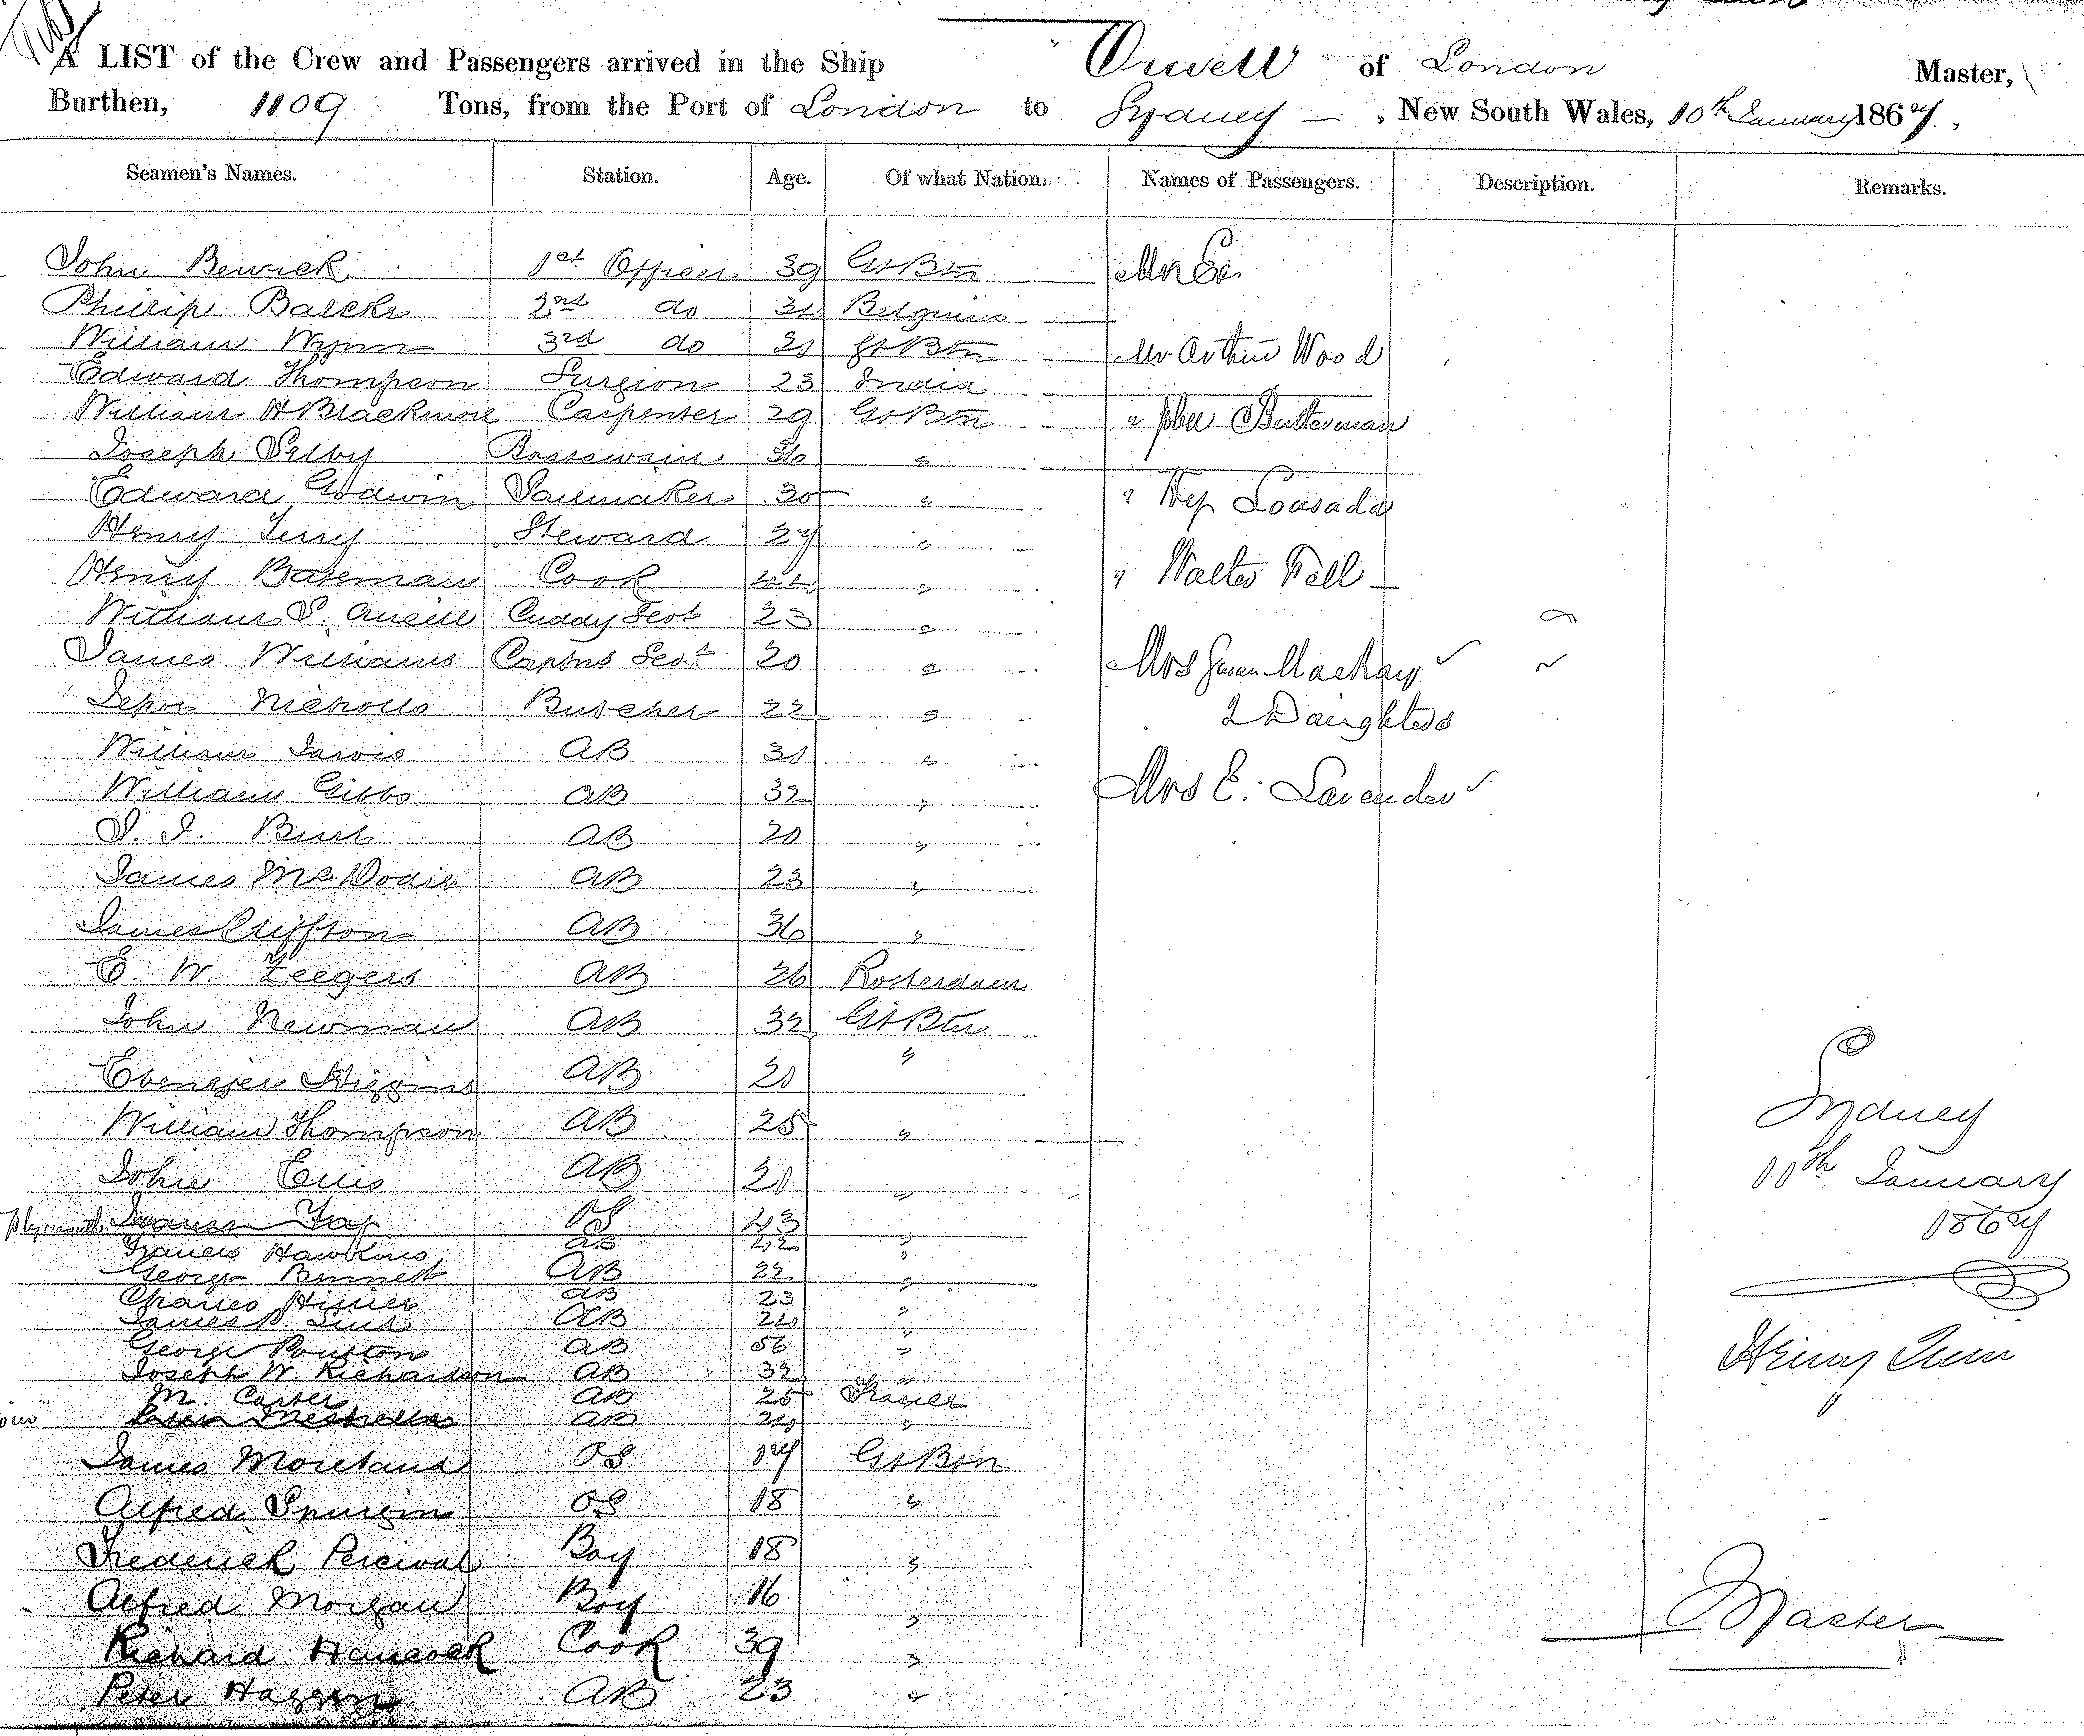 A LIST of the Crew and Passengers arrived in the Ship Orwell of London Master,
Burthen, 1109 Tons, from the Port of London to Sydney — , New South Wales, 10th January 1867.
Seamen's Names. Station. Age. Of what Nation. Names of Passengers. Description. Remarks.
John Bewick 1st Officer 39 Gt Btn
Phillip Balcke 2nd do Belgium
William Wynn 3rd do 21 Gt Btn Mr Arthur Wood
Edward Thompson Surgion 23 India
William H Blackmore Carpenter 29 Gt Btn " Butterman
Joseph Selby Boatswain 36 "
Edward Godwin Sailmaker 30 " " Hy Lousada
Henry Terry Steward 27 "
Henry Bateman Cook 44 " " Walter Fell
William S. Cuddy Sevt 23 "
James Williams Captns Sevt 20 " Mrs Susan Mackay
John Nicholls Butcher 22 " 2 Daughters
William Jarvis AB 31 "
William Gibbs AB 32 " Mrs E. Lavender
AB 20 "
James Mc AB 23 "
James Cliffton AB 36 "
E. W. Zeegers AB 26 Rotterdam
John Newman AB 32 Gt Btn
Ebenezer Higgins AB 21 "
William Thompson AB 25 "
John Ellis AB 21 "
OS 43 "
Francis Hawkins AB 22 "
George Bennett AB 22 "
Charles AB 23 "
James AB "
George Poulton AB 56 "
Joseph W. Richardson AB 32 "
M. Carter AB 25 France
AB "
James Moreland OS 17 Gt Btn
Alfred Spurgin OS 18 "
Frederick Percival Boy 18 "
Alfred Morgan Boy 16 "
Richard Hancock Cook 39 "
Peter Haggren AB 23 "
Sydney
10th January
1867
Henry
Master